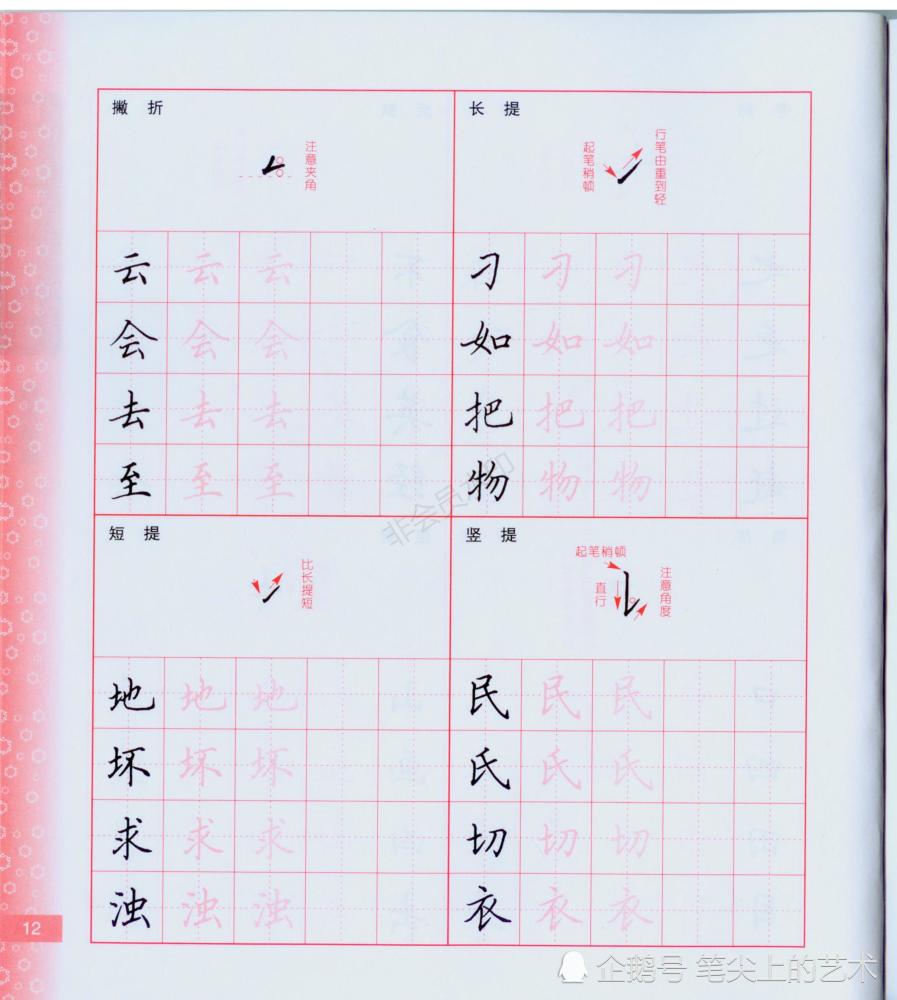 撇 折
注意夹角
云 云 云
会 会 会
去 去 去
至 至 至
长 提
起笔稍顿
行笔由重到轻
刁 刁 刁
如 如 如
把 把 把
物 物 物
短 提
比长提短
地 地 地
坏 坏 坏
求 求 求
浊 浊 浊
竖 提
起笔稍顿
直行
注意角度
民 民 民
氏 氏 氏
切 切 切
衣 衣 衣
12
非会员水印
企鹅号 笔尖上的艺术